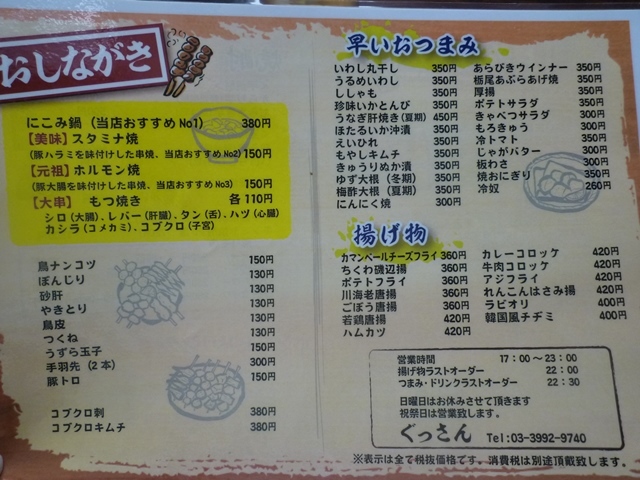 おしながき
にこみ鍋（当店おすすめNo1） 380円
【美味】スタミナ焼
（豚ハラミを味付けした串焼、当店おすすめNo2）150円
【元祖】ホルモン焼
（豚大腸を味付けした串焼、当店おすすめNo3） 150円
【大串】 もつ焼き 各110円
シロ（大腸）、レバー（肝臓）、タン（舌）、ハツ（心臓）
カシラ（コメカミ）、コブクロ（子宮）
鳥ナンコツ 150円
ぼんじり 130円
砂肝 130円
やきとり 130円
鳥皮 130円
つくね 130円
うずら玉子 150円
手羽先（2本） 300円
豚トロ 150円
コブクロ刺 380円
コブクロキムチ 380円
早いおつまみ
いわし丸干し 350円
うるめいわし 350円
ししゃも 350円
珍味いかとんび 350円
うなぎ肝焼き（夏期） 450円
ほたるいか沖漬 350円
えいひれ 350円
もやしキムチ 350円
きゅうりぬか漬 350円
ゆず大根（冬期） 350円
梅酢大根（夏期） 350円
にんにく焼 300円
あらびきウインナー 350円
栃尾あぶらあげ焼 350円
厚揚 350円
ポテトサラダ 350円
きゃべつサラダ 300円
もろきゅう 300円
冷トマト 350円
じゃがバター 300円
板わさ 300円
焼おにぎり 350円
冷奴 260円
揚げ物
カマンベールチーズフライ 360円
ちくわ磯辺揚 360円
ポテトフライ 360円
川海老唐揚 360円
ごぼう唐揚 360円
若鶏唐揚 420円
ハムカツ 420円
カレーコロッケ 420円
牛肉コロッケ 420円
アジフライ 420円
れんこんはさみ揚 420円
ラビオリ 400円
韓国風チヂミ 400円
営業時間 17：00～23：00
揚げ物ラストオーダー 22：00
つまみ・ドリンクラストオーダー 22：30
日曜日はお休みさせて頂きます
祝祭日は営業致します。
ぐっさん Tel:03-3992-9740
※表示は全て税抜価格です。消費税は別途頂戴致します。